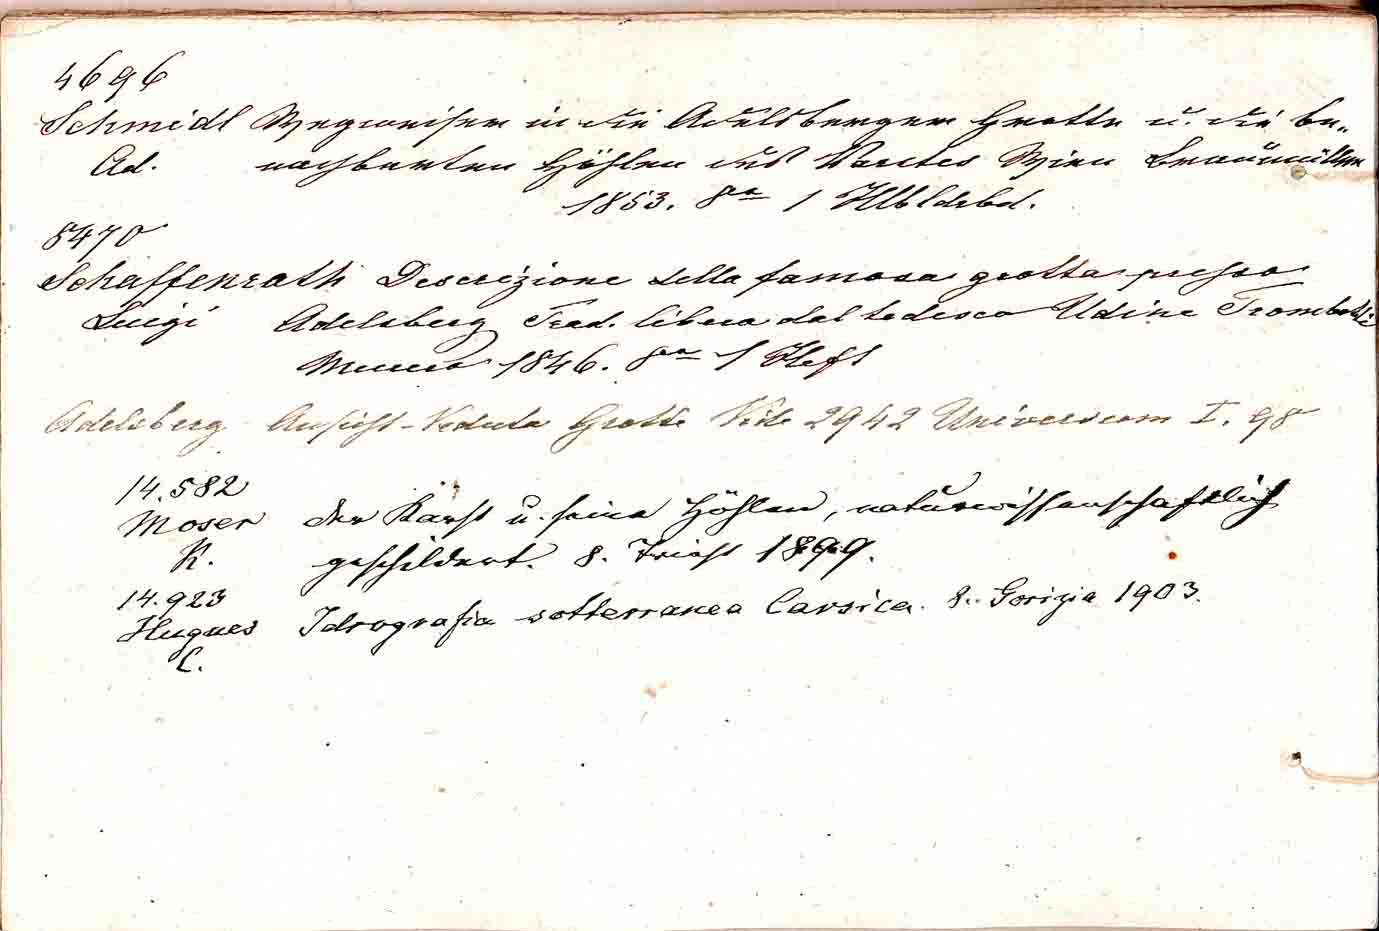 4696
Schmidl Wegweiser in die Adelsberger Grotte u. die be-
Ad. nachbarten Höhlen des Karstes Wien Braumüller
1853. 8vo 1 Hlbldrbd.
5470
Schaffenrath Descrizione della famosa grotta presso
Luigi Adelsberg Trad. libera dal tedesco Udine Trombetti
Murero 1846. 8vo 1 Heft
Adelsberg Ansicht-Veduta Grotte Vide 2942 Universum I. 98
14.582
Moser Der Karst u. seine Höhlen, naturwissenschaftlich
K. geschildert. 8. Triest 1899.
14.923
Hugues Idrografia sotterranea Carsica. 8. Gorizia 1903.
C.